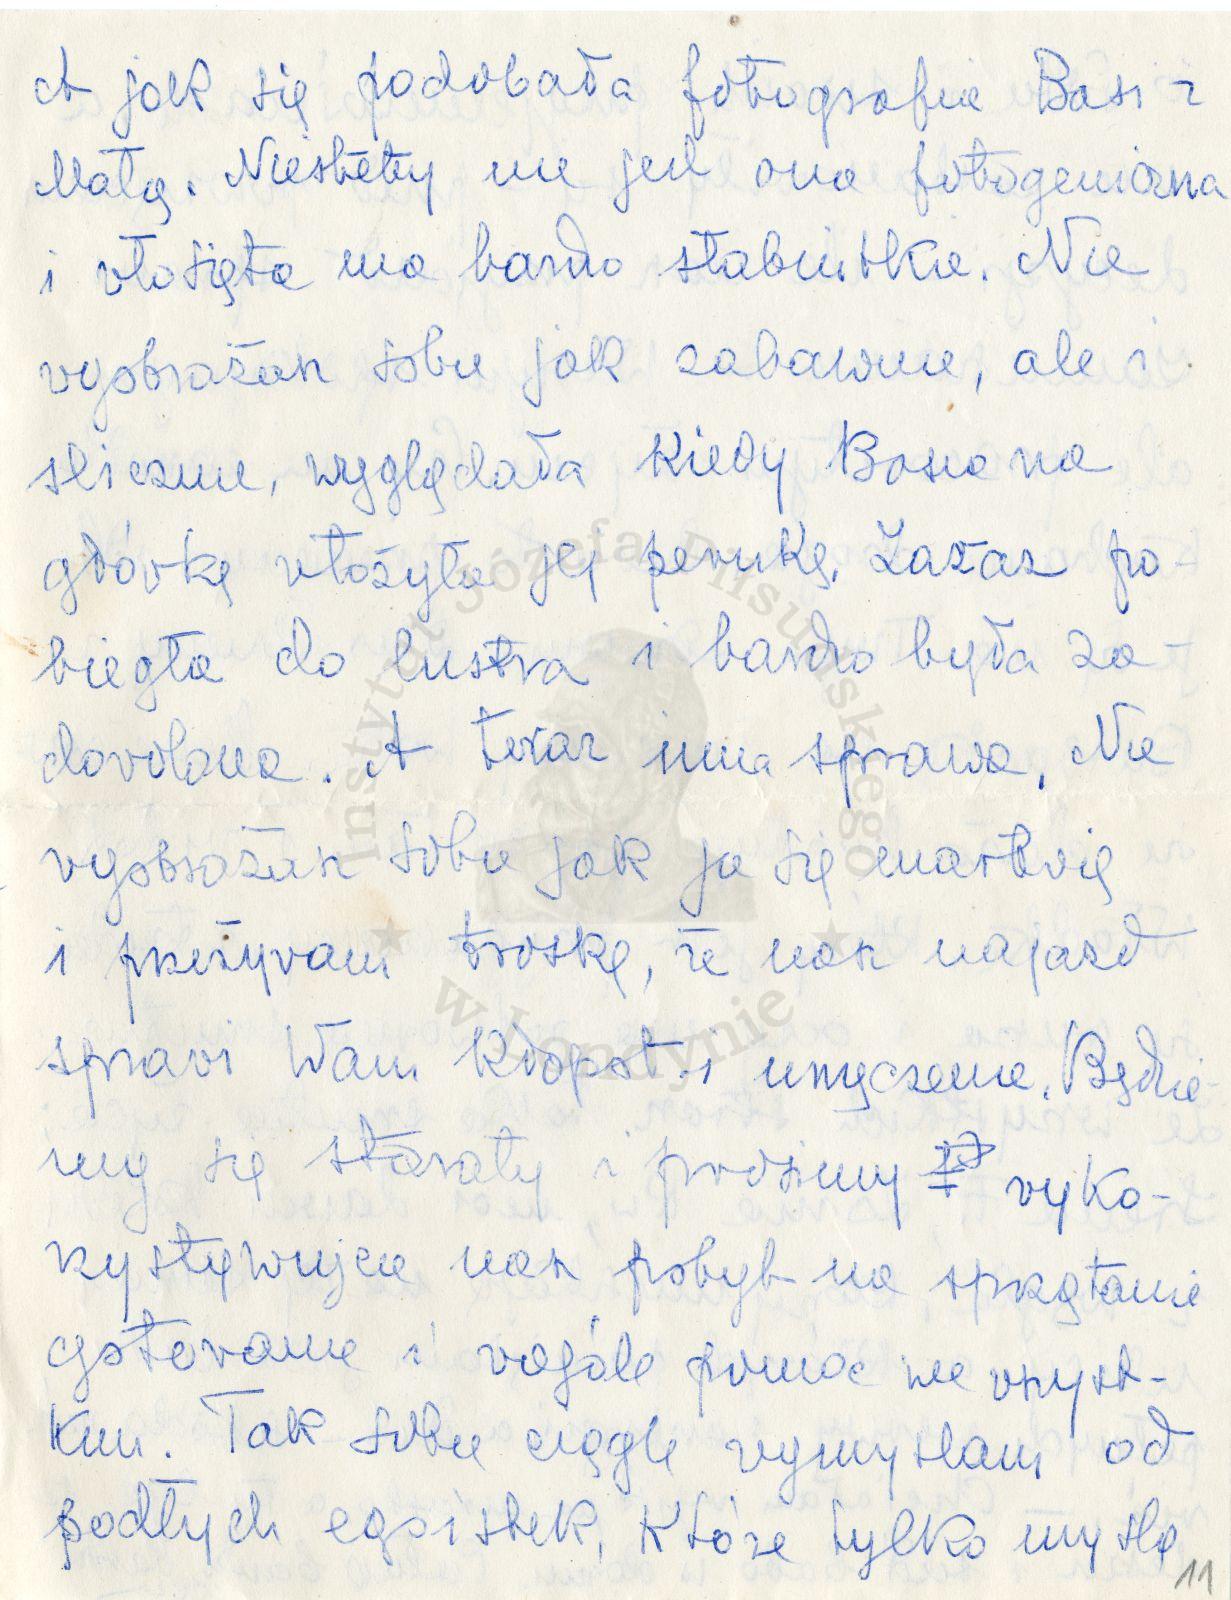 A jak się podobała fotografia Basi z
Małą. Niestety nie jest ona fotogeniczna
i włosięta ma bardzo słabiutkie. Nie
wyobrażasz sobie jak zabawnie, ale i
ślicznie, wyglądała kiedy Basia na
główkę włożyła jej perukę. Zaraz po-
biegła do lustra i bardzo była za-
dowolona. A teraz inna sprawa. Nie
wyobrażasz sobie jak ja się martwię
i przeżywam troskę, że nasz najazd
sprawi Wam kłopot i umęczenie. Będzie-
my się starały i prosimy wyko-
rzystujcie nasz pobyt na sprzątanie
gotowanie i wogóle pomoc we wszyst-
kim. Tak sobie ciągle wymyślam od
podłych egoistek, które tylko myślą
11
Instytut Józefa Piłsudskiego
w Londynie